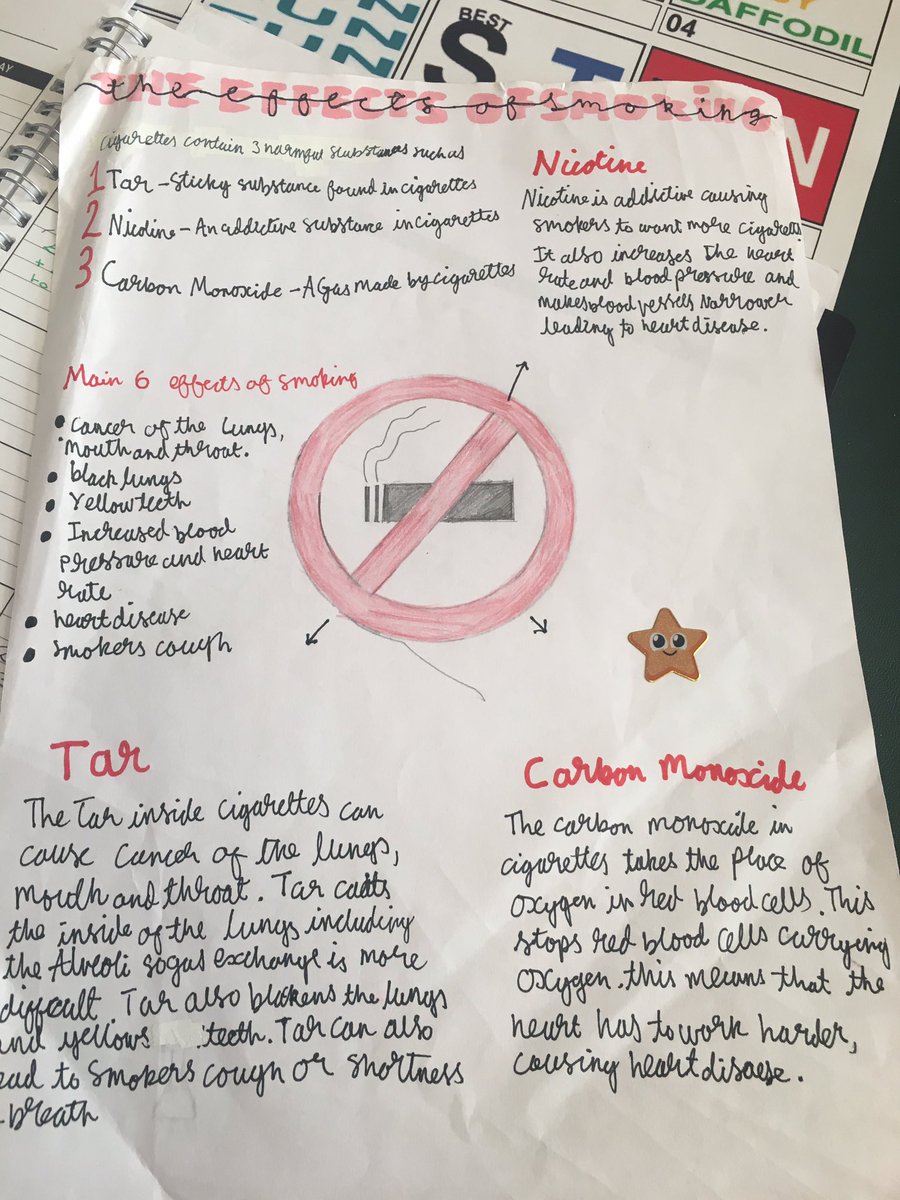 the effects of smoking
Cigarettes contain 3 harmful substances such as
1 Tar - Sticky substance found in cigarettes
2 Nicotine - An addictive substance in cigarettes
3 Carbon Monoxide - A Gas made by cigarettes
Nicotine
Nicotine is addictive causing
smokers to want more cigarett
It also increases the heart
rate and blood pressure and
makes blood vessels narrower
leading to heart disease.
Main 6 effects of smoking
• Cancer of the lungs,
mouth and throat.
• black lungs
• Yellow teeth
• Increased blood
pressure and heart
rate
• heart disease
• smokers cough
Tar
The Tar inside cigarettes can
cause cancer of the lungs,
mouth and throat. Tar coats
the inside of the lungs including
the Alveoli so gas exchange is more
difficult. Tar also blackens the lungs
and yellows teeth. Tar can also
ead to smokers cough or shortness
breath
Carbon Monoxide
The carbon monoxide in
cigarettes takes the place of
oxygen in red blood cells. This
stops red blood cells carrying
oxygen. this means that the
heart has to work harder,
causing heart disaese.
BEST
S
T
04
DAFFODIL
N
AY